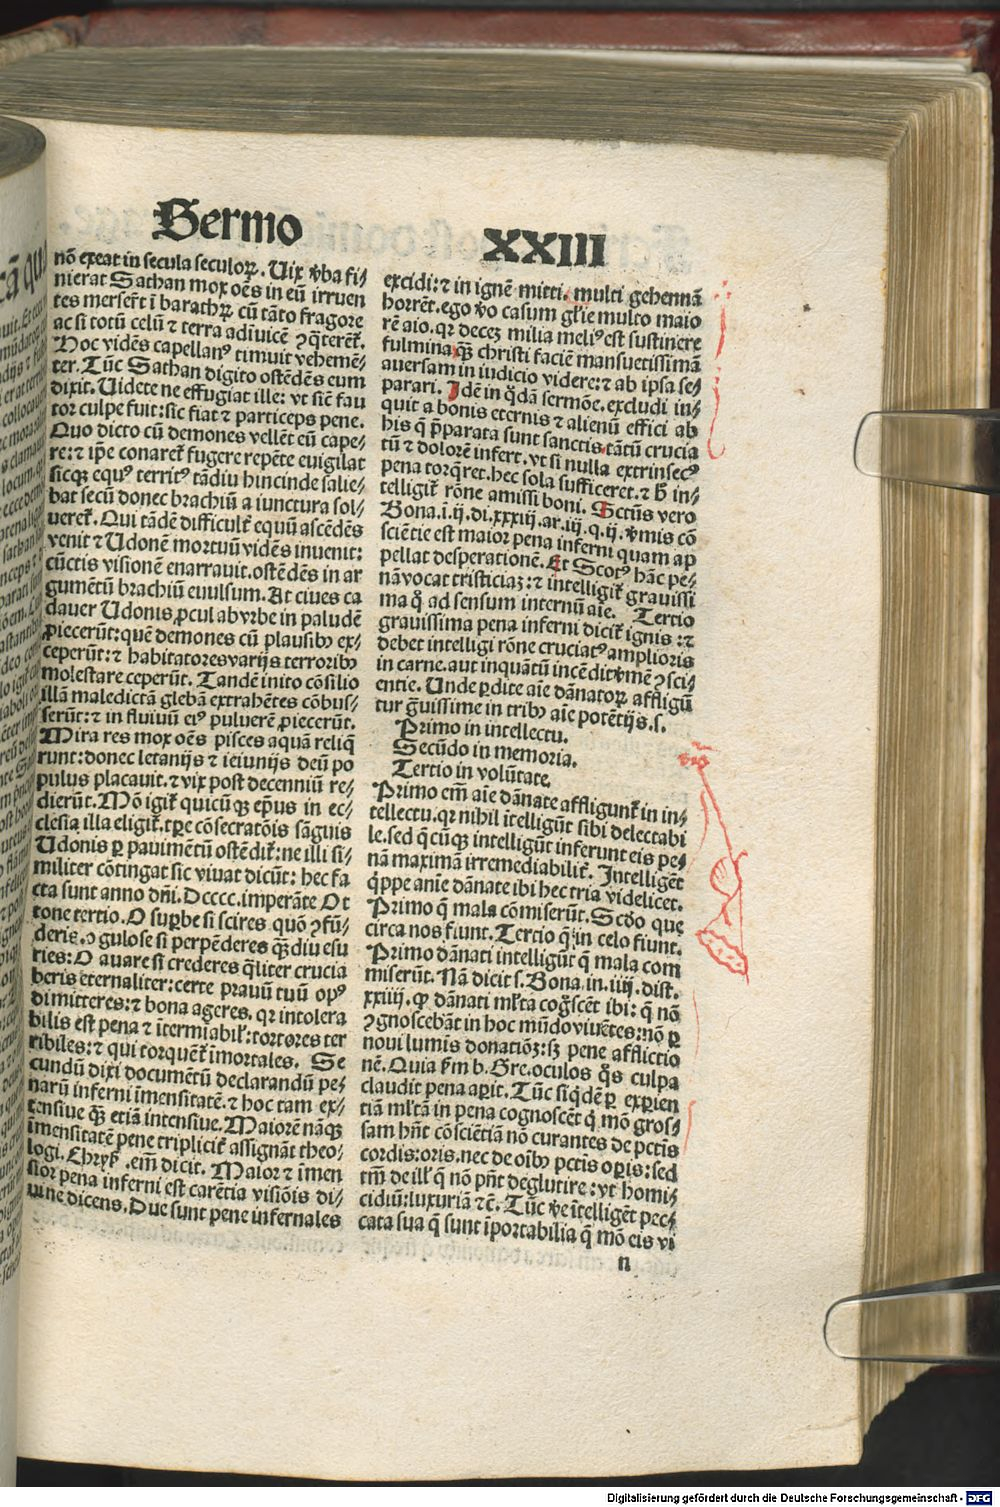 Sermo
XXIII
nõ exeat in secula seculoꝝ. Uix ꝟba fi⸗
nierat Sathan mox oẽs in eũ irruen
tes merserũt ĩ barathꝝ cũ tãto fragore
ac si totũ celũ ⁊ terra adĩuicẽ ꝯq̃terẽt̃.
Hoc vidẽs capellanꝰ timuit vehemẽ⸗
ter. Tũc Sathan digito ostẽdẽs eum
dixit. Uidete ne effugiat ille: vt siẽ fau
tor culpe fuit: sic fiat ⁊ particeps pene.
Quo dicto cũ demones vellẽt eũ cape⸗
re: ⁊ ip̃e conaret̃ fugere repẽte euigilat
sicqꝫ equꝰ territꝰ tãdiu hincinde salie⸗
bat secũ donec brachiũ a iunctura sol⸗
ueret̃. Qui tãdẽ difficult̃ equũ ascẽdẽs
venit ⁊ Udonẽ mortuũ vidẽs inuenit:
cũctis visionẽ enarrauit. ostẽdẽs in ar
gumẽtũ brachiũ euulsum. At ciues ca
dauer Udonis ꝓcul ab vrbe in paludẽ
ꝓiecerũt: quẽ demones cũ plausibꝫ ex⸗
ceperũt: ⁊ habitatores varijs terroribꝫ
molestare ceperũt. Tandẽ inito cõsilio
illã maledictã glebã extrahẽtes cõbus⸗
serũt: ⁊ in fluiuũ eiꝰ puluerẽ ꝓiecerũt.
Mira res mox oẽs pisces aquã reliq̃
runt: donec letanijs ⁊ ieiunijs deũ po
pulus placauit. ⁊ vix post decenniũ re⸗
dierũt. Mõ igit̃ quicũqꝫ ep̃us in ec⸗
clesia illa eligit̃. tp̃e cõsecratõis sãguis
Udonis ꝑ pauimẽtũ ostẽdit̃: ne illi si⸗
militer cõtingat sic viuat dicũt: hec fa
cta sunt anno dñi. Dcccc. imperãte Ot
tone tertio. O suꝑbe si scires quõ ꝯfũ⸗
deris. o gulose si perpẽderes qꝫ̃ diu esu
ries: O auare si crederes q̃liter crucia
beris eternaliter: certe prauũ tuũ opꝰ
dimitteres: ⁊ bona ageres. qꝛ intolera
bilis est pena ⁊ ĩtermiabil̃: tortores ter
ribiles: ⁊ qui torquẽt̃ ĩmortales. Se
cundũ dixi documẽtũ declarandũ pe⸗
narũ inferni ĩmensitatẽ. ⁊ hoc tam ex⸗
tensiue qꝫ̃ etiã intensiue. Maiorẽ nãqꝫ
ĩmensitatẽ pene triplicit̃ assignãt theo⸗
logi. Chryẞ. em̃ dicit. Maior ⁊ ĩmen
sior pena inferni est carẽtia visiõis di⸗
uine dicens. Due sunt pene infernales
excidi: ⁊ in ignẽ mitti. multi gehennã
horrẽt. ego ꝟo casum gl̃ie multo maio
rẽ aio. qꝛ decez milia meliꝰ est sustinere
fulmina qꝫ̃ christi faciẽ mansuetissimã
auersam in iudicio videre: ⁊ ab ipsa se⸗
parari. Idẽ in q̃dã sermõe. excludi in⸗
quit a bonis eternis ⁊ alienũ effici ab
his q̃ p̃parata sunt sanctis tãtũ crucia
tũ ⁊ dolorẽ infert. vt si nulla extrinsecꝰ
pena torq̃ret. hec sola sufficeret. ⁊ h̃ in⸗
telligit̃ rõne amissi boni. Sctũs vero
Bona. i. ij. di. xxxiij. ar. iij. q. ij. ꝟmis cõ
sciẽtie est maior pena inferni quam ap
pellat desperationẽ. Et Scotꝰ hãc pe⸗
nã vocat tristiciaꝫ: ⁊ intelligit̃ grauissi
ma q̃ ad sensum internũ aĩe. Tertio
grauissima pena inferni dicit̃ ignis: ⁊
debet intelligi rõne cruciatꝰ amplioris
in carne. aut inquãtũ incẽdit ꝟmẽ ꝯsci⸗
entie. Unde ꝑdite aĩe dãnatoꝝ affligũ
tur g̃uissime in tribꝫ aĩe potẽtijs. s.
Primo in intellectu.
Secũdo in memoria.
Tertio in volũtate.
Primo em̃ aĩe dãnate affligunt̃ in in⸗
tellectu. qꝛ nihil ĩtelligũt sibi delectabi
le. sed q̃cũqꝫ intelligũt inferunt eis pe⸗
nã maximã irremediabilit̃. Intelligẽt
q̃ppe anĩe dãnate ibi hec tria videlicet.
Primo q̃ mala cõmiserũt. Scḋo que
circa nos fiunt. Tertio q̃ in celo fiunt.
Primo dãnati intelligũt q̃ mala com
miserũt. Nã dicit s. Bona. in. iiij. dist.
xxiiij. ꝙ dãnati ml̃ta cog̃scẽt ibi: q̃ nõ
ꝯgnoscebãt in hoc mũdo viuẽtes: nõ ꝑ
noui lumis donatiõꝫ: sꝫ pene afflictio
nẽ. Quia ẞm b. Gre. oculos q̃s culpa
claudit pena aꝑit. Tũc siq̃dẽ ꝑ exꝑien
tiã ml̃tã in pena cognoscẽt q̃ mõ gros⸗
sam hñt cõsciẽtiã nõ curantes de pctĩs
cordis: oris. nec de oĩbꝫ pctĩs oꝑis: sed
tm̃ de ill̃ q̃ nõ pñt deglutire: vt homi⸗
cidiũ: luxuriã ⁊c̃. Tũc ꝟe ĩtelligẽt pec⸗
cata sua q̃ sunt ĩportabilia q̃ mõ eis vi
n
Digitalisierung gefördert durch die Deutsche Forschungsgemeinschaft - DFG